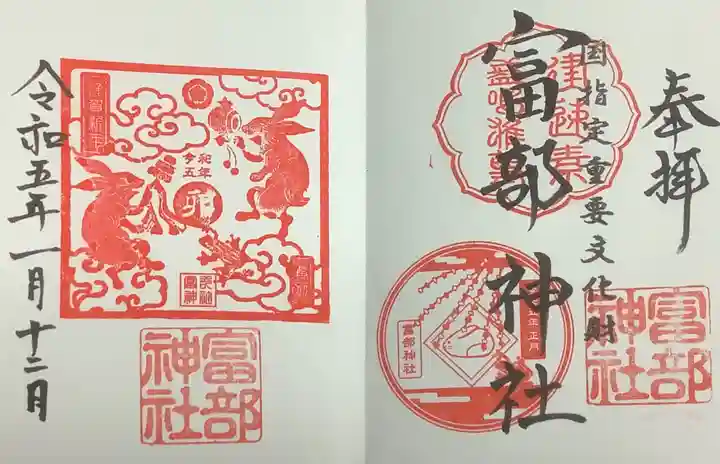 奉拝
国指定重要文化財
富部神社
富部神社
富部神社
正月
令和五年一月十二日
謹賀新年
令和
五年
卯
富部神社